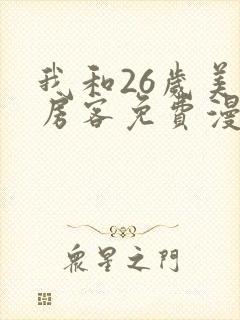 我和26歲美
房客免費漫
眾星之門